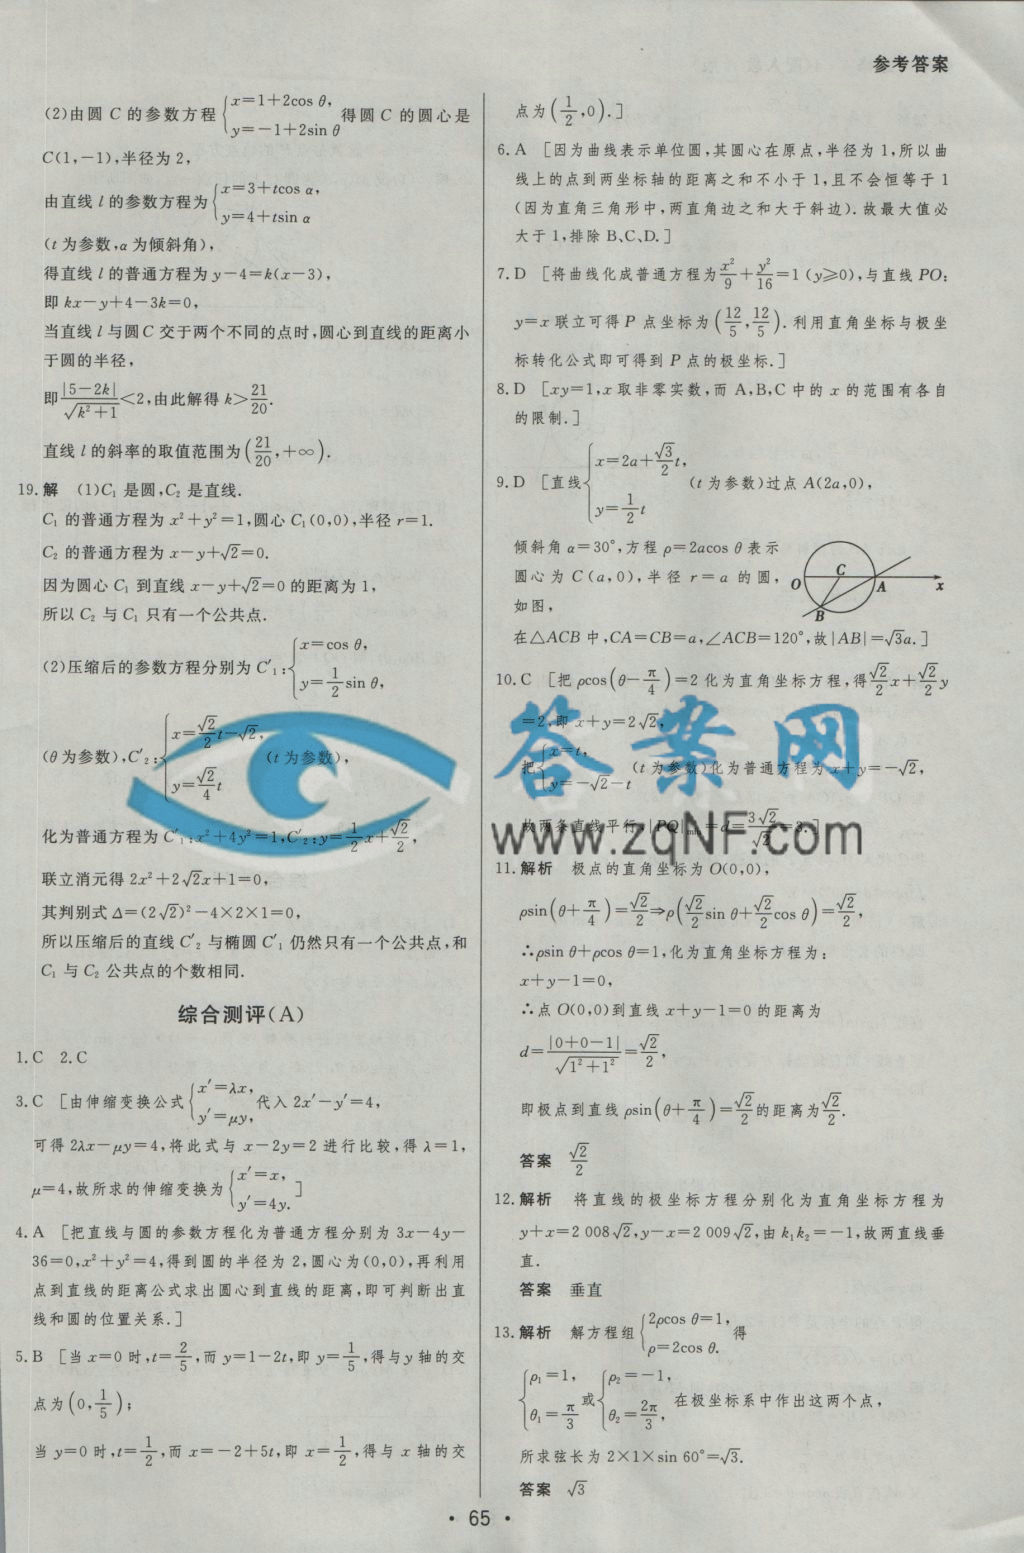 参考答案
(2)由圆 C 的参数方程{x=1+2cos θ, y=-1+2sin θ 得圆 C 的圆心是
C(1,-1),半径为 2,
由直线 l 的参数方程为{x=3+tcos α, y=4+tsin α
(t 为参数,α 为倾斜角),
得直线 l 的普通方程为 y-4=k(x-3),
即 kx-y+4-3k=0,
当直线 l 与圆 C 交于两个不同的点时,圆心到直线的距离小
于圆的半径,
即|5-2k|/√(k²+1)<2,由此解得 k>21/20.
直线 l 的斜率的取值范围为(21/20,+∞).
19.解 (1)C₁ 是圆,C₂ 是直线.
C₁ 的普通方程为 x²+y²=1,圆心 C₁(0,0),半径 r=1.
C₂ 的普通方程为 x-y+√2=0.
因为圆心 C₁ 到直线 x-y+√2=0 的距离为 1,
所以 C₂ 与 C₁ 只有一个公共点.
(2)压缩后的参数方程分别为 C′₁:{x=cos θ, y=1/2 sin θ,
(θ为参数),C′₂:{x=√2/2 t-√2, y=√2/4 t (t 为参数),
化为普通方程为 C′₁:x²+4y²=1,C′₂:y=1/2 x+√2/2,
联立消元得 2x²+2√2x+1=0,
其判别式 Δ=(2√2)²-4×2×1=0,
所以压缩后的直线 C′₂ 与椭圆 C′₁ 仍然只有一个公共点,和
C₁ 与 C₂ 公共点的个数相同.
综合测评(A)
1.C 2.C
3.C [由伸缩变换公式{x′=λx, y′=μy, 代入 2x′-y′=4,
可得 2λx-μy=4,将此式与 x-2y=2 进行比较,得 λ=1,
μ=4,故所求的伸缩变换为{x′=x, y′=4y. ]
4.A [把直线与圆的参数方程化为普通方程分别为 3x-4y-
36=0,x²+y²=4,得到圆的半径为 2,圆心为(0,0),再利用
点到直线的距离公式求出圆心到直线的距离,即可判断出直
线和圆的位置关系.]
5.B [当 x=0 时,t=2/5,而 y=1-2t,即 y=1/5,得与y 轴的交
点为(0,1/5);
当 y=0 时,t=1/2,而 x=-2+5t,即 x=1/2,得与 x 轴的交
点为(1/2,0).]
6.A [因为曲线表示单位圆,其圆心在原点,半径为 1,所以曲
线上的点到两坐标轴的距离之和不小于 1,且不会恒等于 1
(因为直角三角形中,两直角边之和大于斜边).故最大值必
大于 1,排除 B、C、D.]
7.D [将曲线化成普通方程为x²/9+y²/16=1(y≥0),与直线 PO:
y=x 联立可得 P 点坐标为(12/5,12/5).利用直角坐标与极坐
标转化公式即可得到 P 点的极坐标.]
8.D [xy=1,x 取非零实数,而 A,B,C 中的 x 的范围有各自
的限制.]
9.D [直线{x=2a+√3/2 t, y=1/2 t (t 为参数)过点 A(2a,0),
倾斜角 α=30°,方程 ρ=2acos θ 表示
圆心为 C(a,0),半径 r=a 的圆,
如图,
O C A x
B
在△ACB 中,CA=CB=a,∠ACB=120°,故|AB|=√3a.]
10.C [把 ρcos(θ-π/4)=2 化为直角坐标方程,得√2/2 x+√2/2 y
=2,即 x+y=2√2,
把{x=t, y=-√2-t (t 为参数)化为普通方程为 x+y=-√2,
故两条直线平行,|PQ|min=d=3√2/√2=3.]
11.解析 极点的直角坐标为 O(0,0),
ρsin(θ+π/4)=√2/2⇒ρ(√2/2 sin θ+√2/2 cos θ)=√2/2,
∴ρsin θ+ρcos θ=1,化为直角坐标方程为:
x+y-1=0,
∴点 O(0,0)到直线 x+y-1=0 的距离为
d=|0+0-1|/√(1²+1²)=√2/2,
即极点到直线 ρsin(θ+π/4)=√2/2的距离为√2/2.
答案 √2/2
12.解析 将直线的极坐标方程分别化为直角坐标方程为
y+x=2 008√2,y-x=2 009√2,由 k₁k₂=-1,故两直线垂
直.
答案 垂直
13.解析 解方程组{2ρcos θ=1, ρ=2cos θ. 得
{ρ₁=1, θ₁=π/3 或{ρ₂=-1, θ₂=2π/3, 在极坐标系中作出这两个点,
所求弦长为 2×1×sin 60°=√3.
答案 √3
答案网
www.zqNF.com
· 65 ·